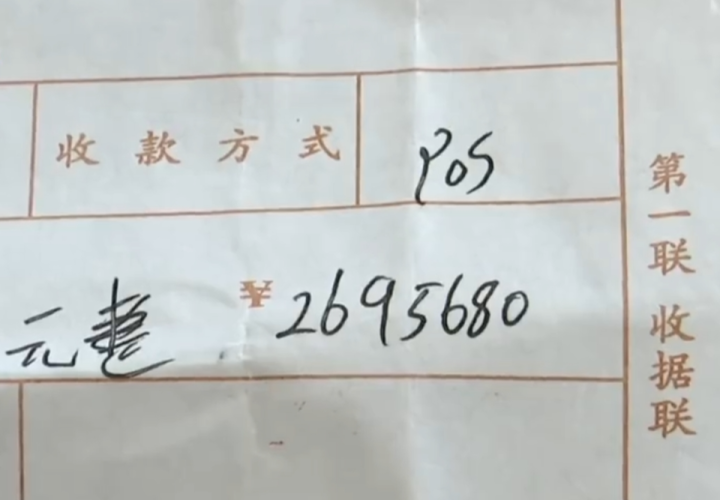 收款方式 POS
元整 ¥2695680
第一联 收据联